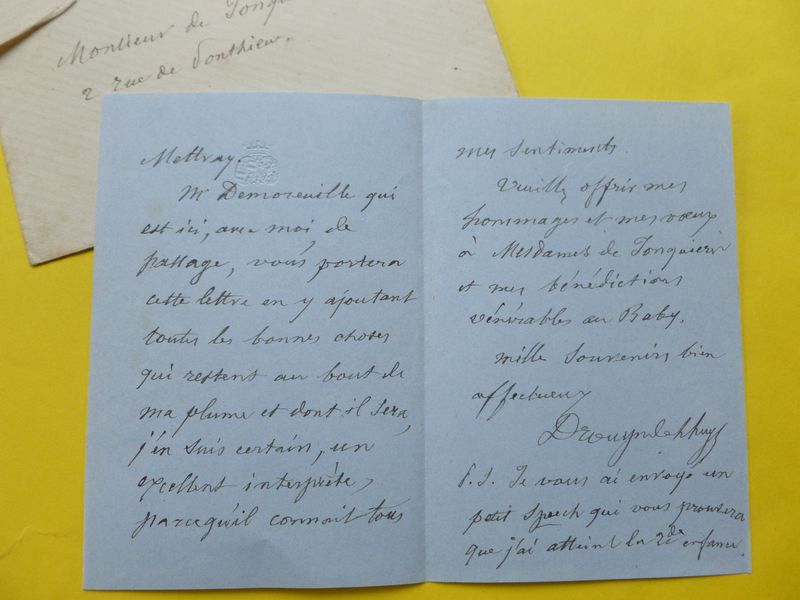 Monsieur de Jonqui
2 rue de Ponthieu.
Mettray.
Mr Demoreuille qui
est ici, avec moi, de
passage, vous portera
cette lettre en y ajoutant
toutes les bonnes choses
qui restent au bout de
ma plume et dont il sera,
j'en suis certain, un
excellent interprète,
parcequ'il connait tous
mes sentiments.
Veuillez offrir mes
hommages et mes vœux
à Mesdames de Jonquières
et mes bénédictions
vénérables au Baby.
mille souvenirs bien
affectueux
Drouyn de Lhuys
P.S. Je vous ai envoyé un
petit speech qui vous prouvera
que j'ai atteint la 2de enfance.